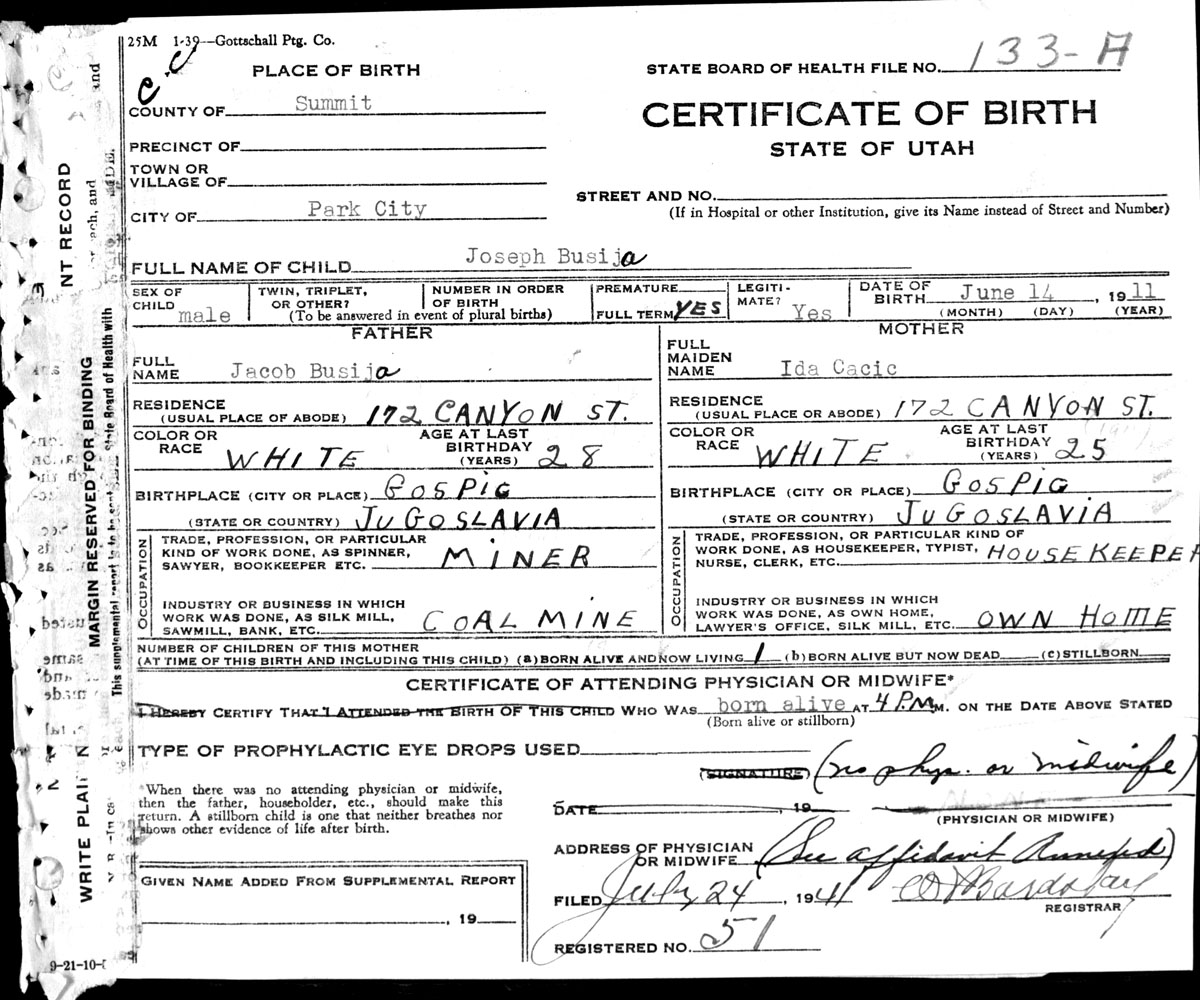 25M 1-39—Gottschall Ptg. Co.
PLACE OF BIRTH
STATE BOARD OF HEALTH FILE NO. 133-A
COUNTY OF Summit
CERTIFICATE OF BIRTH
STATE OF UTAH
PRECINCT OF
TOWN OR
VILLAGE OF
STREET AND NO.
(If in Hospital or other Institution, give its Name instead of Street and Number)
CITY OF Park City
FULL NAME OF CHILD Joseph Busija
SEX OF CHILD male
TWIN, TRIPLET, OR OTHER?
NUMBER IN ORDER OF BIRTH
(To be answered in event of plural births)
PREMATURE
FULL TERM YES
LEGITIMATE? Yes
DATE OF BIRTH June 14, 1911
(MONTH) (DAY) (YEAR)
FATHER
FULL NAME Jacob Busija
RESIDENCE
(USUAL PLACE OF ABODE) 172 CANYON ST.
COLOR OR RACE WHITE
AGE AT LAST BIRTHDAY (YEARS) 28
BIRTHPLACE (CITY OR PLACE) GOSPIG
(STATE OR COUNTRY) JUGOSLAVIA
OCCUPATION
TRADE, PROFESSION, OR PARTICULAR
KIND OF WORK DONE, AS SPINNER,
SAWYER, BOOKKEEPER ETC. MINER
INDUSTRY OR BUSINESS IN WHICH
WORK WAS DONE, AS SILK MILL,
SAWMILL, BANK, ETC. COAL MINE
MOTHER
FULL MAIDEN NAME Ida Cacic
RESIDENCE
(USUAL PLACE OR ABODE) 172 CANYON ST.
COLOR OR RACE WHITE
AGE AT LAST BIRTHDAY (YEARS) 25
BIRTHPLACE (CITY OR PLACE) GOSPIG
(STATE OR COUNTRY) JUGOSLAVIA
OCCUPATION
TRADE, PROFESSION, OR PARTICULAR KIND OF
WORK DONE, AS HOUSEKEEPER, TYPIST,
NURSE, CLERK, ETC. HOUSEKEEPER
INDUSTRY OR BUSINESS IN WHICH
WORK WAS DONE, AS OWN HOME,
LAWYER'S OFFICE, SILK MILL, ETC. OWN HOME
NUMBER OF CHILDREN OF THIS MOTHER
(AT TIME OF THIS BIRTH AND INCLUDING THIS CHILD) (a) BORN ALIVE AND NOW LIVING 1 (b) BORN ALIVE BUT NOW DEAD (c) STILLBORN
CERTIFICATE OF ATTENDING PHYSICIAN OR MIDWIFE*
I HEREBY CERTIFY THAT I ATTENDED THE BIRTH OF THIS CHILD WHO WAS born alive AT 4 P.M. M. ON THE DATE ABOVE STATED
(Born alive or stillborn)
TYPE OF PROPHYLACTIC EYE DROPS USED
(SIGNATURE) (no phys. or midwife)
*When there was no attending physician or midwife,
then the father, householder, etc., should make this
return. A stillborn child is one that neither breathes nor
shows other evidence of life after birth.
DATE , 19
(PHYSICIAN OR MIDWIFE)
ADDRESS OF PHYSICIAN
OR MIDWIFE (See affidavit Annexed)
GIVEN NAME ADDED FROM SUPPLEMENTAL REPORT
, 19
FILED July 24, 1941
REGISTRAR
REGISTERED NO. 51
9-21-10-
MARGIN RESERVED FOR BINDING
WRITE PLAI
NT RECORD
This supplemental report is to be sent State Board of Health with